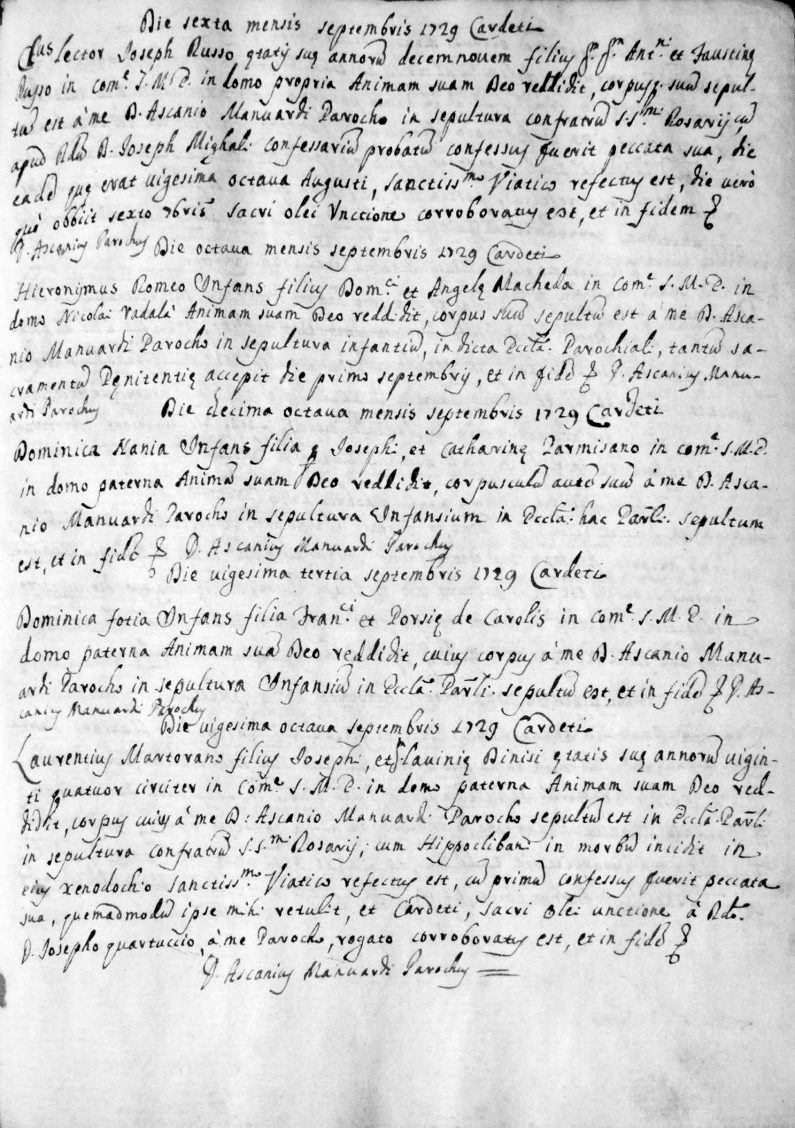 Die sexta mensis septembris 1729 Cardeti
Cłus lector Joseph Russo ętatis suę annorū decemnouem filius qm qm Antni et Faustinę
Russo in come S. M. D. in domo propria Animam suam Deo reddidit, corpusq; suū sepul-
tū est á me D. Ascanio Manuardi Parocho in sepultura confratrū S.S.mi Rosarij cū
apud Rdū D. Joseph Mighali confessariū probatū confessus fuerit peccata sua, die
eadē quę erat uigesima octaua Augusti, sanctissmo Viatico refectus est, die uerò
quo obbijt sexto 7bris sacri olei Vnctione corroboratus est, et in fidem
D. Ascanius Parochus Die octaua mensis septembris 1729 Cardeti
Hieronymus Romeo Infans filius Domci et Angelę Macheda in come S. M. D. in
domo Nicolai Vadalà Animam suam Deo reddidit, corpus suū sepultū est á me D. Asca-
nio Manuardi Parocho in sepultura infantiū, in dicta Eccła Parochiali, tantū sa-
cramentū Pęnitentię accepit die primo septembris, et in fidē D. Ascanius Manu-
ardi Parochus Die decima octaua mensis septembris 1729 Cardeti
Dominica Nania Infans filia Joseph, et Catharinę Parmisano in come S. M. D.
in domo paterna Animā suam Deo reddidit, corpusculū autē suū á me D. Asca-
nio Manuardi Parocho in sepultura Infansium in Eccła hac Parłi sepultum
est, et in fidē D. Ascanius Manuardi Parochus
Die uigesima tertia septembris 1729 Cardeti
Dominica fotia Infans filia Franci et Porsię de Carolis in come S. M. D. in
domo paterna Animam suā Deo reddidit, cuius corpus á me D. Ascanio Manu-
ardi Parocho in sepultura Infansiū in Eccła Parłi sepultū est, et in fidē D. As-
canius Manuardi Parochus
Die uigesima octaua septembris 1729 Cardeti
Laurentius Martorano filius Joseph, et Lauinię Binisi ętatis suę annorū uigin-
ti quatuor circiter in Come S. M. D. in domo paterna Animam suam Deo red-
didit, corpus cuius á me D: Ascanio Manuardi Parocho sepultū est in Eccła Parłi
in sepultura confratrū S.S.mi Rosarij; cum Hippocliban in morbū incidit in
eius xenodochio sanctissmo Viatico refectus est, cū primū confessus fuerit peccata
sua, quemadmodū ipse mihi retulit, et Cardeti, sacri olei unctione á Rdo
D. Josepho quartuccio, á me Parocho, rogato corroboratus est, et in fidē
D. Ascanius Manuardi Parochus